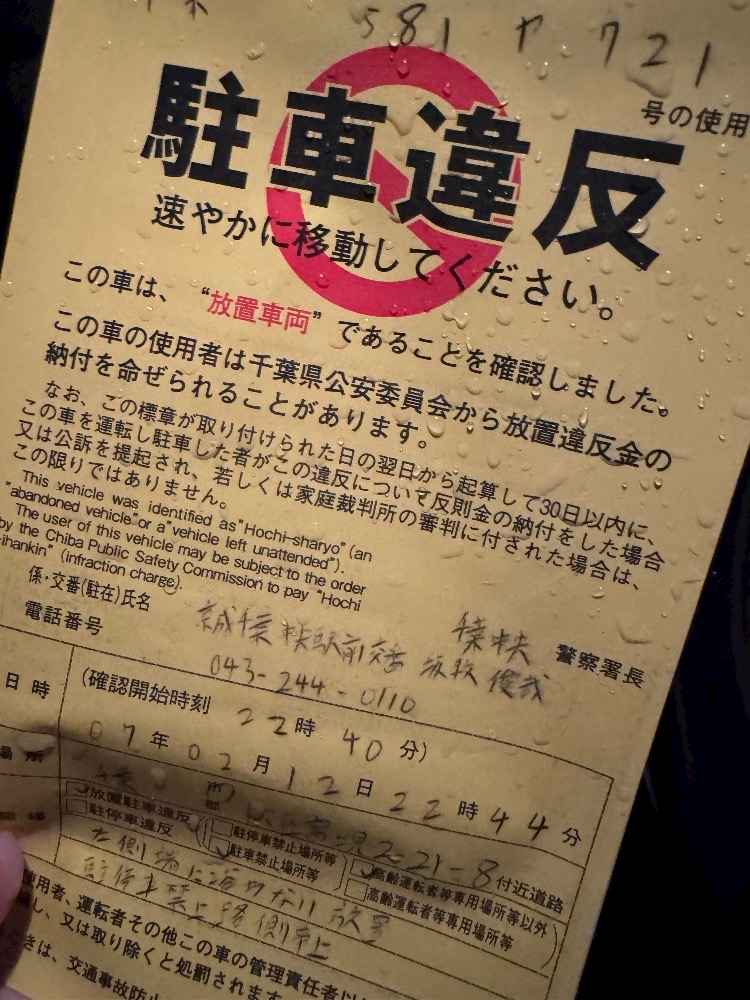 581 や 721
号の使用
駐車違反
速やかに移動してください。
この車は、“放置車両”であることを確認しました。
この車の使用者は千葉県公安委員会から放置違反金の
納付を命ぜられることがあります。
なお、この標章が取り付けられた日の翌日から起算して30日以内に、
この車を運転し駐車した者がこの違反について反則金の納付をした場合
又は公訴を提起され、若しくは家庭裁判所の審判に付された場合は、
この限りではありません。
This vehicle was identified as "Hochi-sharyo" (an
"abandoned vehicle" or a "vehicle left unattended").
The user of this vehicle may be subject to the order
by the Chiba Public Safety Commission to pay "Hochi
ihankin" (infraction charge).
千葉中央 警察署長
係・交番(駐在)氏名
電話番号 043-244-0110
(確認開始時刻 22時 40分)
日時 07年02月12日22時44分
場所 市 郡 2-21-8付近道路
放置駐車違反 駐停車禁止場所等 高齢運転者等専用場所等以外
駐停車違反 駐車禁止場所等 高齢運転者等専用場所等
左側端に沿わない 放置
使用者、運転者その他この車の管理責任者以
し、又は取り除くと処罰されます
きは、交通事故防止